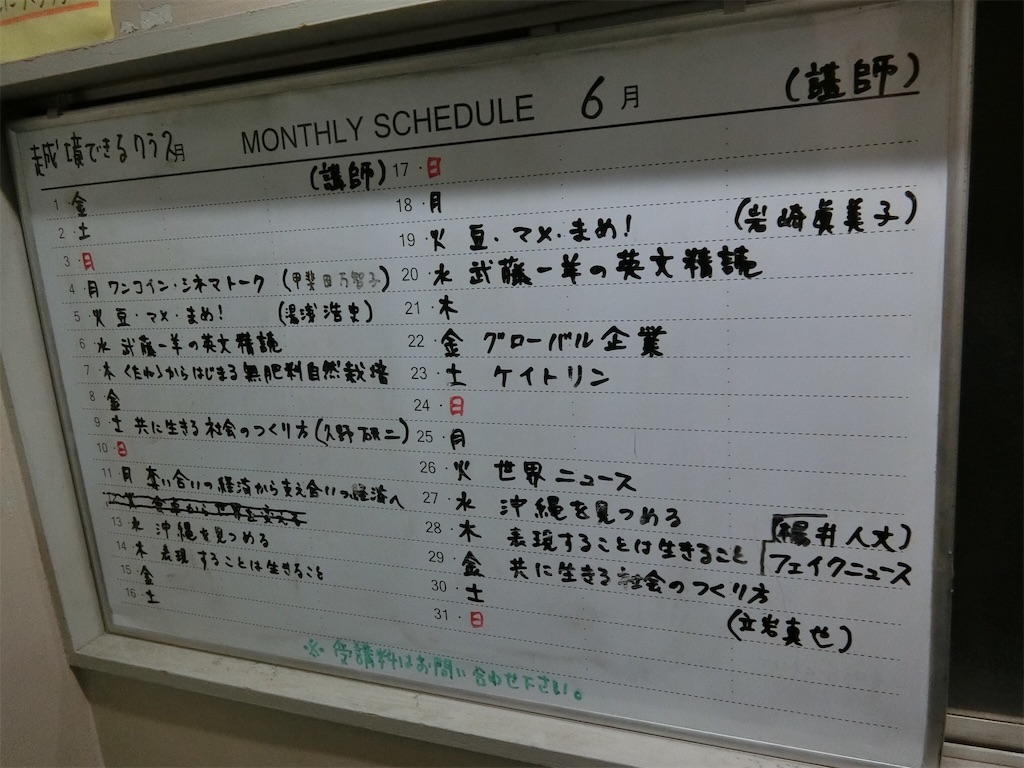 越境できるクラス月
MONTHLY SCHEDULE 6月
(講師)
(講師)
1 金
2 土
3 日
4 月 ワンコイン・シネマトーク (甲斐田万智子)
5 火 豆・マメ・まめ! (湯浅浩史)
6 水 武藤一羊の英文精読
7 木 〈たね〉からはじまる無肥料自然栽培
8 金
9 土 共に生きる社会のつくり方(久野研二)
10 日
11 月 奪い合いの経済から支え合いの経済へ
12 火 食卓から世界を変える
13 水 沖縄を見つめる
14 木 表現することは生きること
15 金
16 土
17 日
18 月
19 火 豆・マメ・まめ! (岩崎眞美子)
20 水 武藤一羊の英文精読
21 木
22 金 グローバル企業
23 土 ケイトリン
24 日
25 月
26 火 世界ニュース
27 水 沖縄を見つめる
28 木 表現することは生きること (楊井人文)
フェイクニュース
29 金 共に生きる社会のつくり方
30 土
(立岩真也)
31 日
※受講料はお問い合わせ下さい。